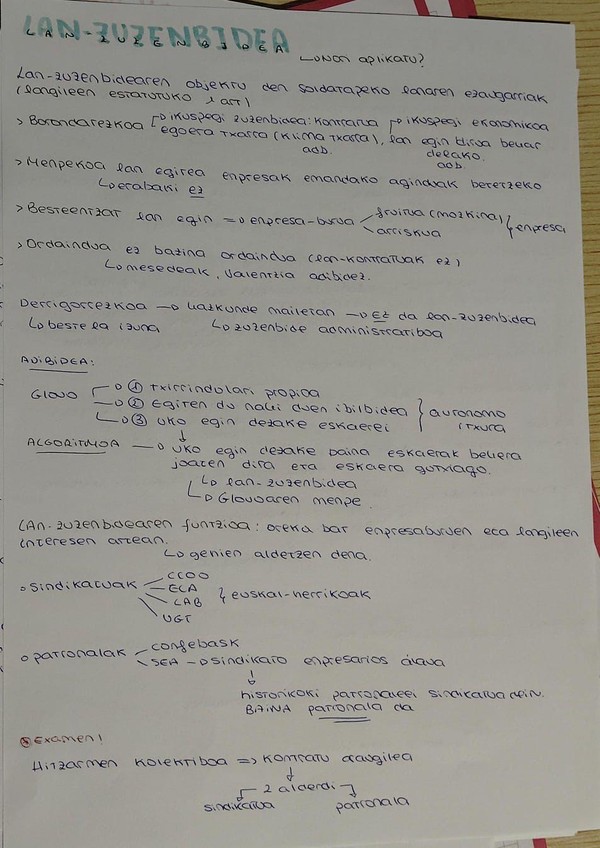 LAN-ZUZENBIDEA
LAN-ZUZENBIDEA
↳ NON aplikatu?
Lan-zuzenbidearen objektu den soldatapeko lanaren ezaugarriak
(langileen estatutuko 1 art)
> Borondatezkoa → ikuspegi zuzenbidea: kontratua → ikuspegi ekonomikoa
egoera txarra (klima txarra), lan egin behar
adb. delako.
adb.
> Menpekoa lan egitea enpresak emandako aginduak betetzeko
↳ erabaki ez
> Besteentzat lan egin => enpresa-burua fruitua (mozkina) } enpresa
arriskua
> Ordaindua ez bazina ordaindua (lan-kontratuak ez)
↳ mesedeak, valentzia adibidez.
Derrigorrezkoa → hazkunde mailetan → Ez da lan-zuzenbidea
↳ beste la izuna ↳ zuzenbide administratiboa
ADIBIDEA:
GLOVO → ① txirrindulari propioa
→ ② Egiten du nahi duen ibilbidea } autonomo
→ ③ uko egin dezake eskaerei itxura
ALGORITMOA → uko egin dezake baina eskaerak behera
joaten dira eta eskaera gutxiago.
↳ lan-zuzenbidea
↳ Glovoaren menpe
LAN-zuzenbidearen funtzioa: oreka bat enpresaburuen eta langileen
interesen artean.
↳ gehien aldetzen dena.
o sindikatuak CCOO
ELA
LAB } euskal-herrikoak
UGT
o patronalak confebask
SEA → sindikato enpresarios álava
historikoki patronaleei sindikatua deitu.
BAINA patronala da
Examen!
Hitzarmen kolektiboa => kontratu araugilea
2 alderdi
sindikatua patronala